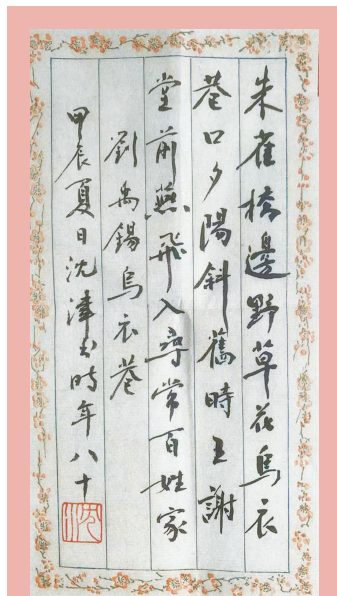 朱雀橋邊野草花烏衣
巷口夕陽斜舊時王謝
堂前燕飛入尋常百姓家
劉禹錫烏衣巷
甲辰夏日沈津书時年八十
沈